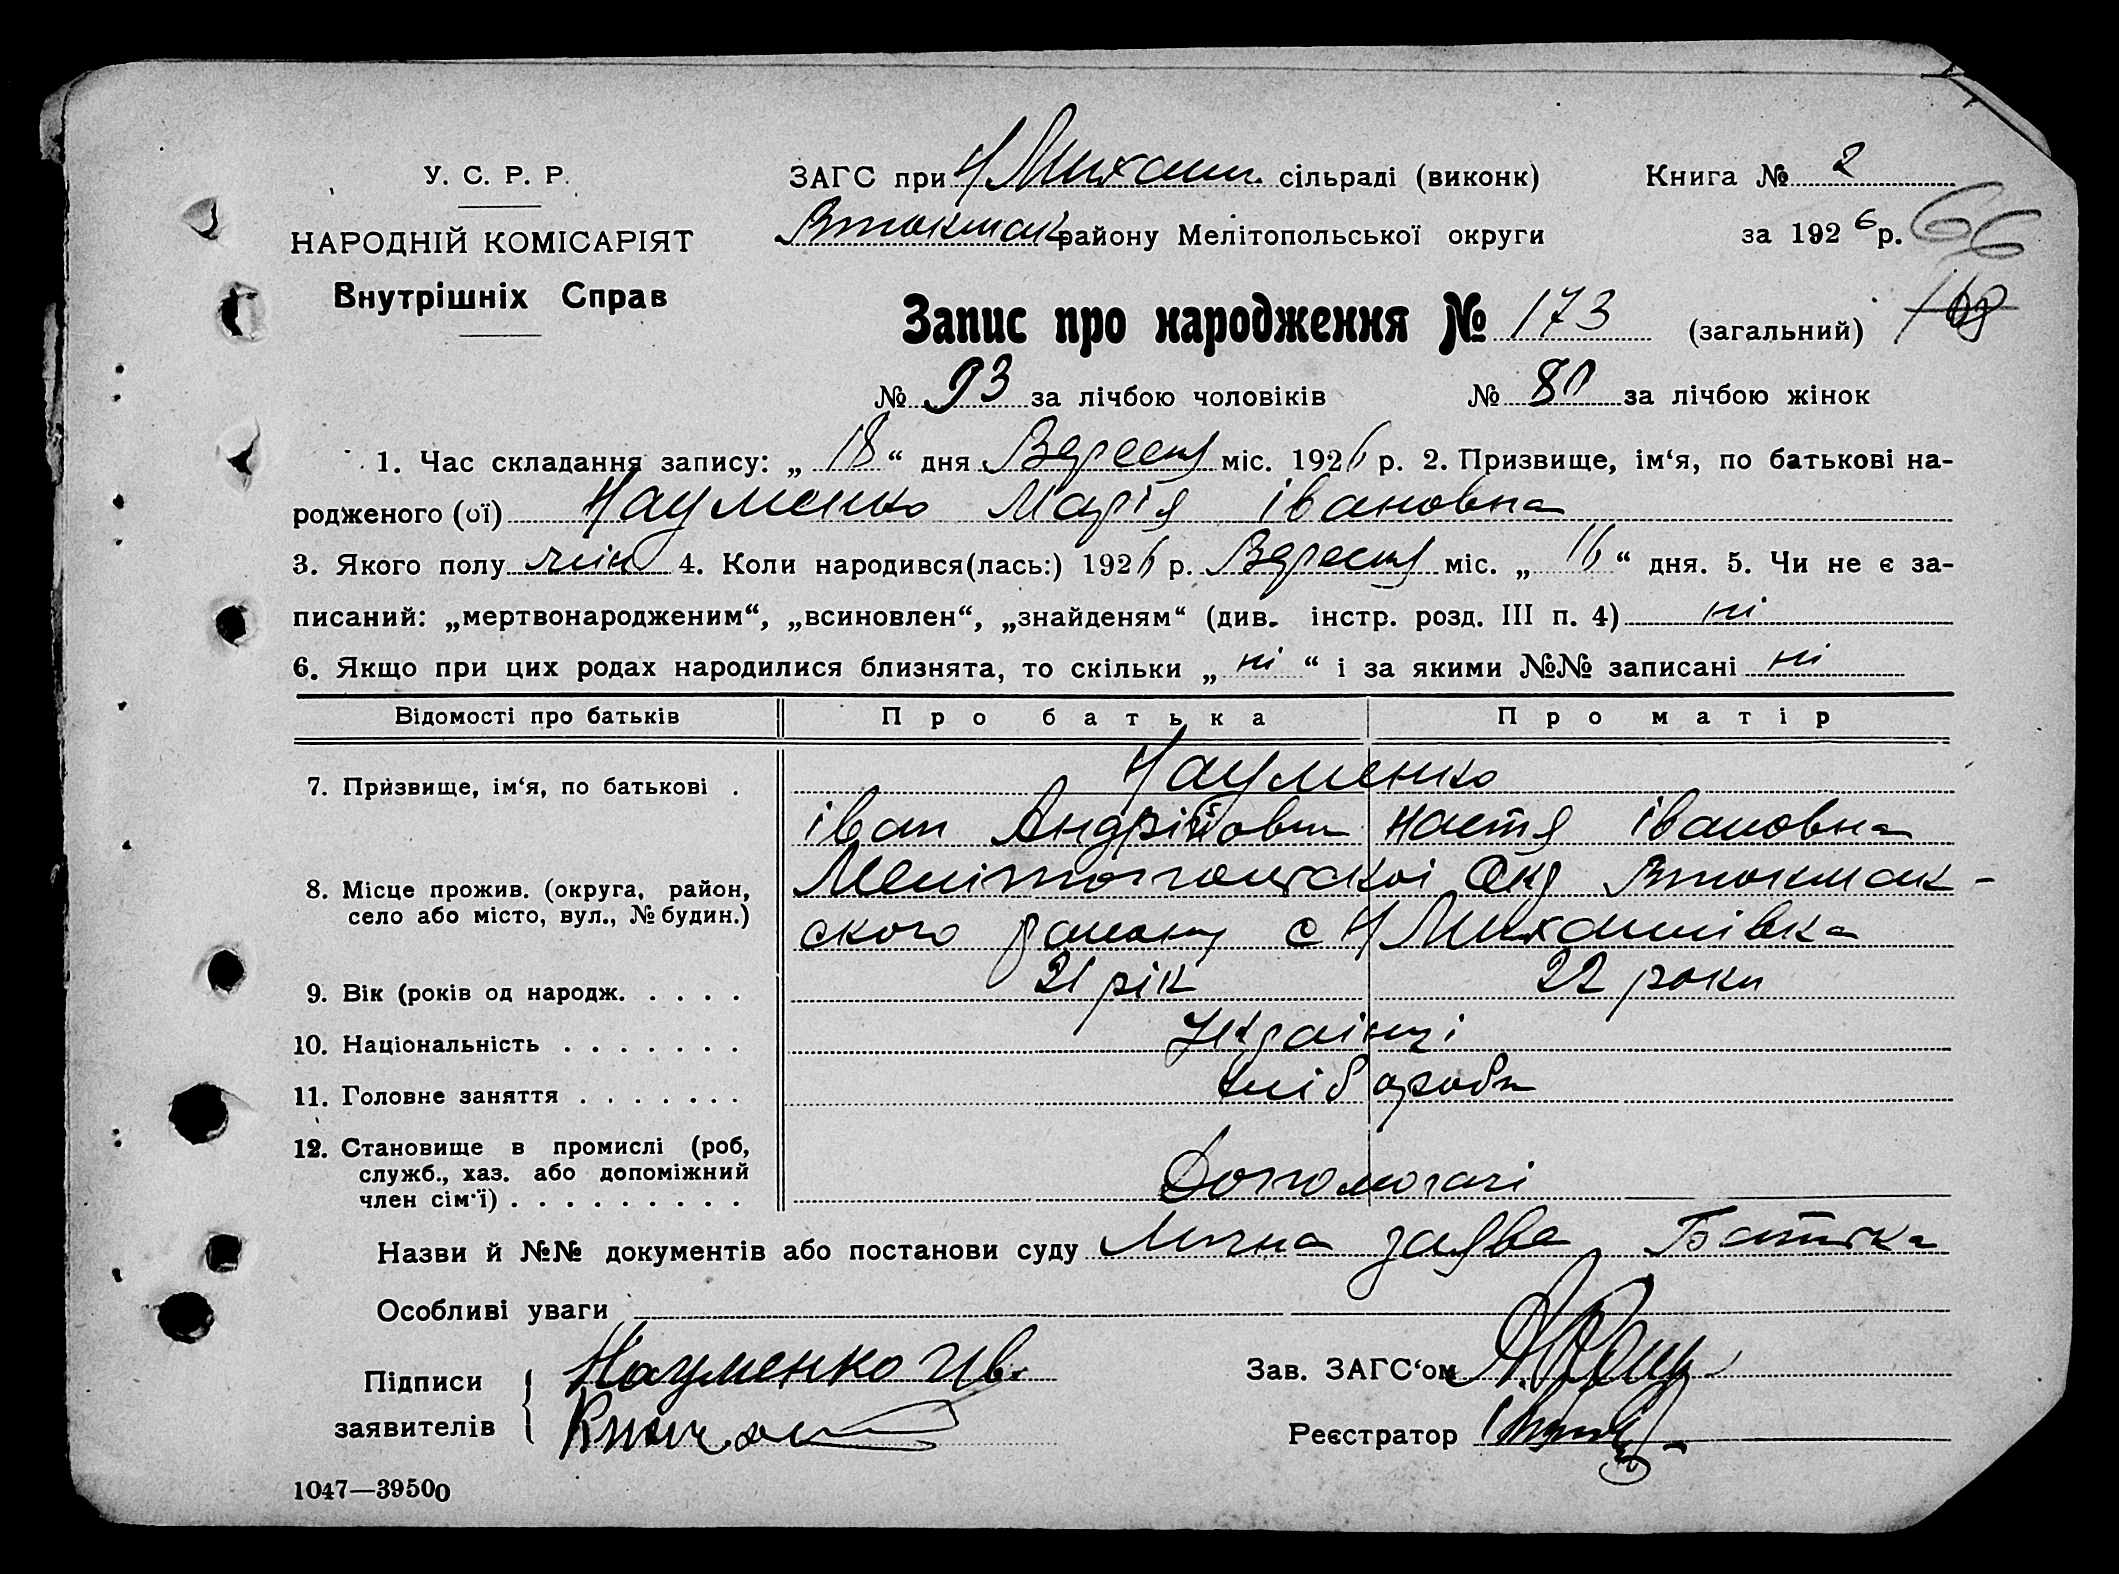 У. С. Р. Р.
НАРОДНІЙ КОМІСАРІЯТ
Внутрішніх Справ
ЗАГС при Н Михайл. сільраді (виконк)
Втокмак району Мелітопольської округи
Книга № 2
за 1926 р. 66
Запис про народження № 173 (загальний)
№ 93 за лічбою чоловіків № 80 за лічбою жінок
1. Час складання запису: „18“ дня Вересня міс. 1926 р. 2. Призвище, ім‘я, по батькові на-
родженого (ої) Науменко Марія івановна
3. Якого полу жін 4. Коли народився(лась:) 1926 р. Вересня міс. „16“ дня. 5. Чи не є за-
писаний: „мертвонародженим“, „всиновлен“, „знайденям“ (див. інстр. розд. III п. 4) ні
6. Якщо при цих родах народилися близнята, то скільки „ні“ і за якими №№ записані ні
Відомості про батьків Про батька Про матір
7. Призвище, ім‘я, по батькові . Науменко
іван Андрійович Настя івановна
8. Місце прожив. (округа, район, Мелітопольської Окр Втокмак-
село або місто, вул., № будин.) ского району с Н Михайлівка
9. Вік (років од народж. . . . . 21 рік 22 роки
10. Національність . . . . . . . Українці
11. Головне заняття . . . . . . . хлібороби
12. Становище в промислі (роб,
служб., хаз. або допоміжний
член сім‘ї) . . . . . . . . . Допомогачі
Назви й №№ документів або постанови суду Лична заява Батька
Особливі уваги
Підписи Науменко Ив.
заявителів
Зав. ЗАГС‘ом
Реєстратор
1047—39500